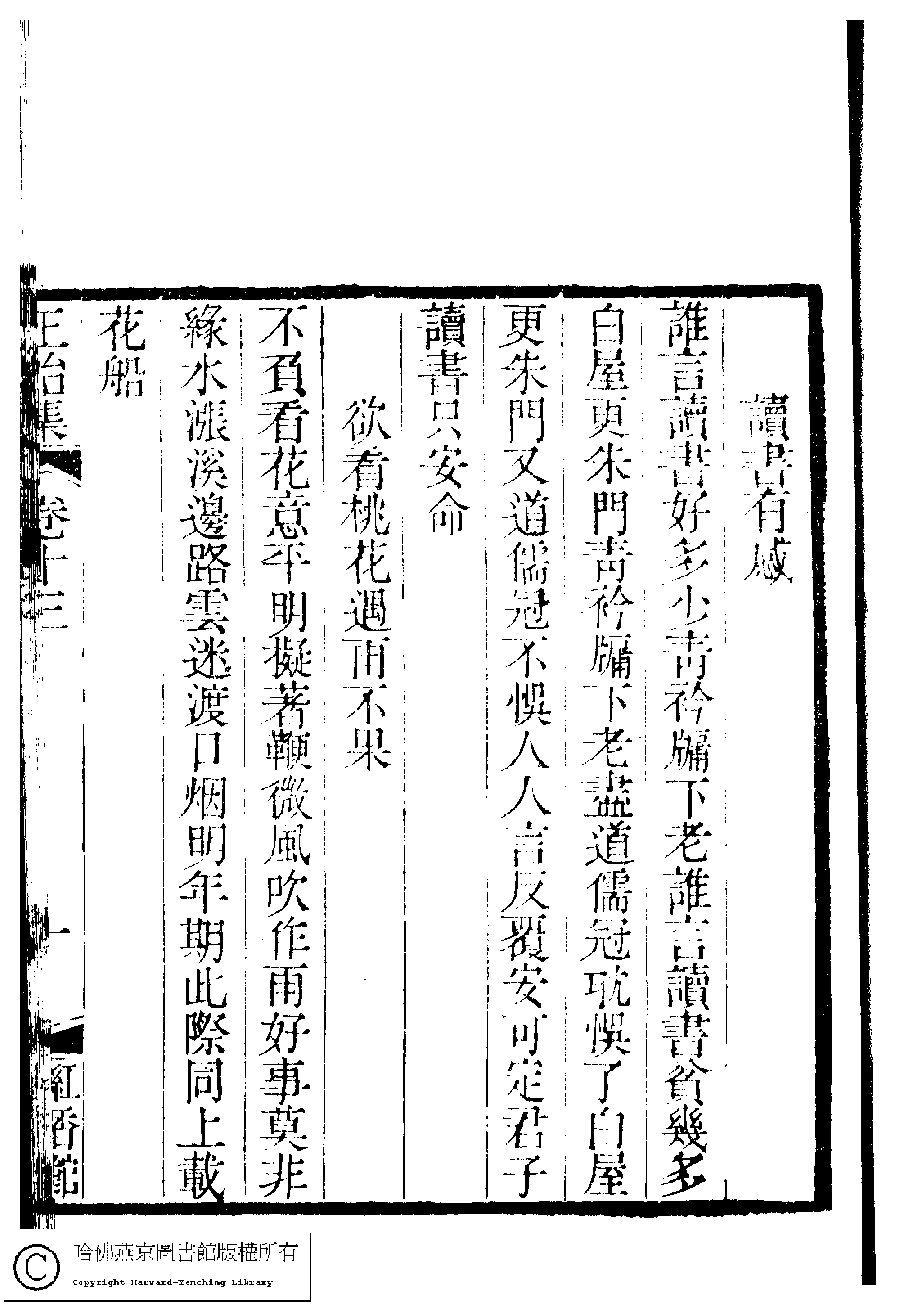 讀書有感
誰言讀書好多少青衿牖下老誰言讀書貧幾多
白屋更朱門青衿牖下老盡道儒冠耽悞了白屋
更朱門又道儒冠不悞人人言反覆安可定君子
讀書只安命
欲看桃花遇雨不果
不負看花意平明擬著鞭微風吹作雨好事莫非
緣水漲溪邊路雲迷渡口烟明年期此際同上載
花船
王治集 卷十三 十 紅香館
哈佛燕京圖書館版權所有
Copyright Harvard-Yenching Library